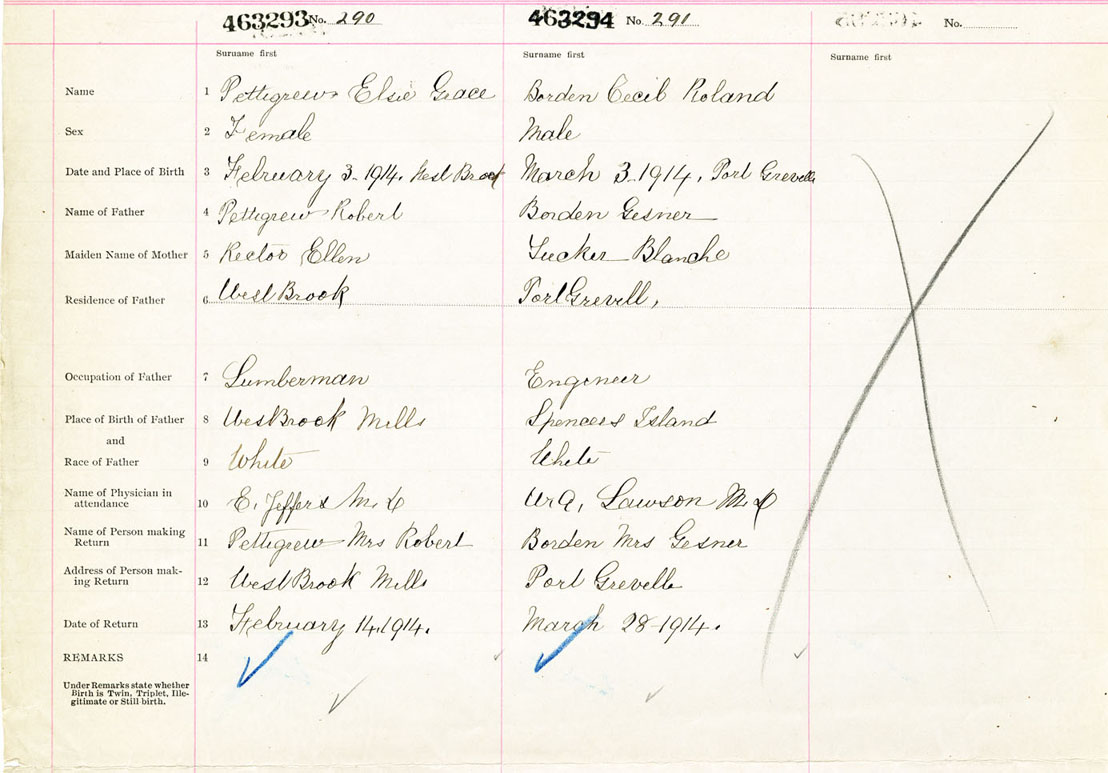 463293 No. 290
463294 No. 291
No.
Surname first
Surname first
Surname first
Name 1 Pettigrew Elsie Grace Borden Cecil Roland
Sex 2 Female Male
Date and Place of Birth 3 February 3-1914. West Brook March 3-1914, Port Greville
Name of Father 4 Pettigrew Robert Borden Gesner
Maiden Name of Mother 5 Rector Ellen Tucker Blanche
Residence of Father 6 West Brook Port Grevill,
Occupation of Father 7 Lumberman Engineer
Place of Birth of Father 8 WestBrook Mills Spencers Island
and
Race of Father 9 White White
Name of Physician in
attendance 10 E. Jeffers M.D Lawson M.D
Name of Person making
Return 11 Pettigrew Mrs Robert Borden Mrs Gesner
Address of Person mak-
ing Return 12 West Brook Mills Port Greville
Date of Return 13 February 14.1914. March 28-1914.
REMARKS 14
Under Remarks state whether
Birth is Twin, Triplet, Ille-
gitimate or Still birth.